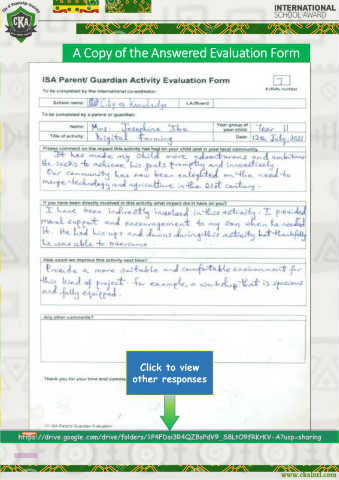 CKA
INTERNATIONAL
SCHOOL AWARD
A Copy of the Answered Evaluation Form
ISA Parent/ Guardian Activity Evaluation Form
7
To be completed by the international co-ordinator:
Activity number
School name City of Knowledge LA/Board
To be completed by a parent or guardian:
Name Mrs. Josephine Year group of your child Year 11
Title of activity Digital Farming Date 12th July, 2021
Please comment on the impact this activity has had on your child and in your local community.
It has made my child more adventurous and ambitious
He seeks to achieve his goals promptly and
Our community has now been on the need to
merge technology and agriculture in the 21st century.
If you have been directly involved in this activity what impact did it have on you?
I have been indirectly involved in this activity. I provided
moral support and encouragement to my son when he needed
it. He had his ups and downs during this activity but thankfully
he was able to overcome.
How could we improve this activity next time?
Provide a more suitable and comfortable environment for
this kind of project. For example, a workshop that is spacious
and fully equipped.
Any other comments?
Click to view
other responses
Thank you for your time and
ISA Parent/ Guardian Evaluation
www.ckaintl.com